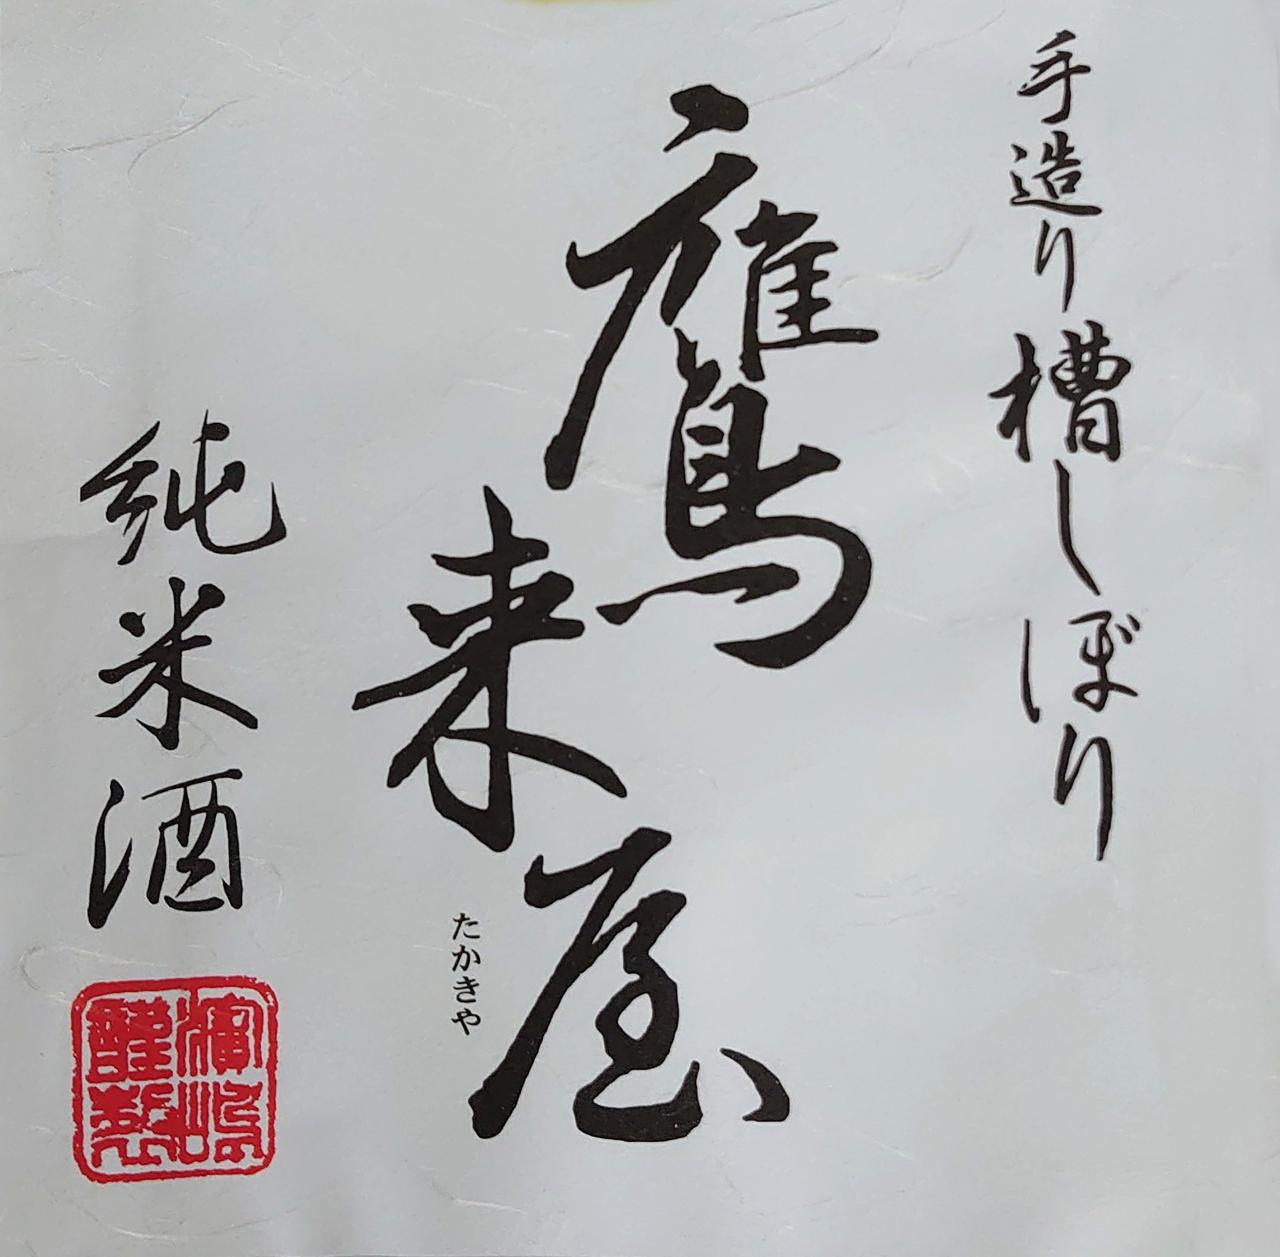 手造り槽しぼり
鷹来屋
たかきや
純米酒
濵嶋
謹製